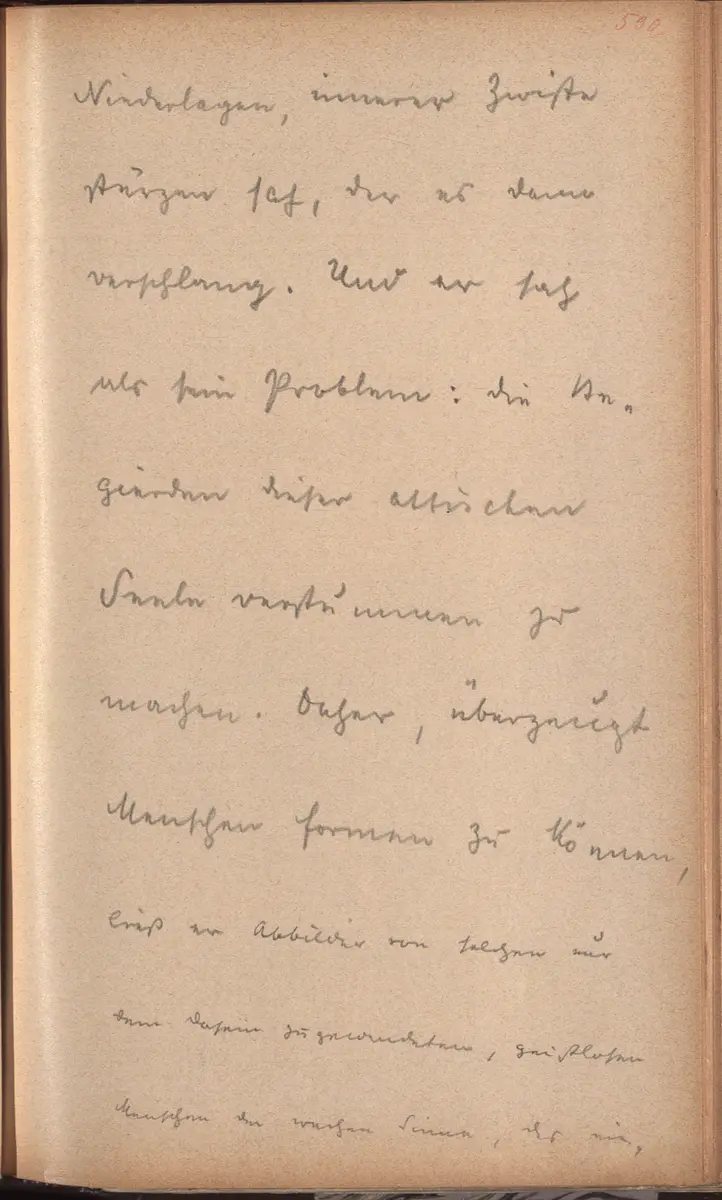 590
Niederlagen, innerer Zwiste
stürzen sah, der es dann
verschlang. Und er sah
als sein Problem: die Be-
gierden dieser attischen
Seele verstummen zu
machen. Daher, überzeugt
Menschen formen zu können,
ließ er Abbilder von solchen nur
dem Dasein zugewandeten, geistlosen
Menschen der wachen Sinne, des ein-